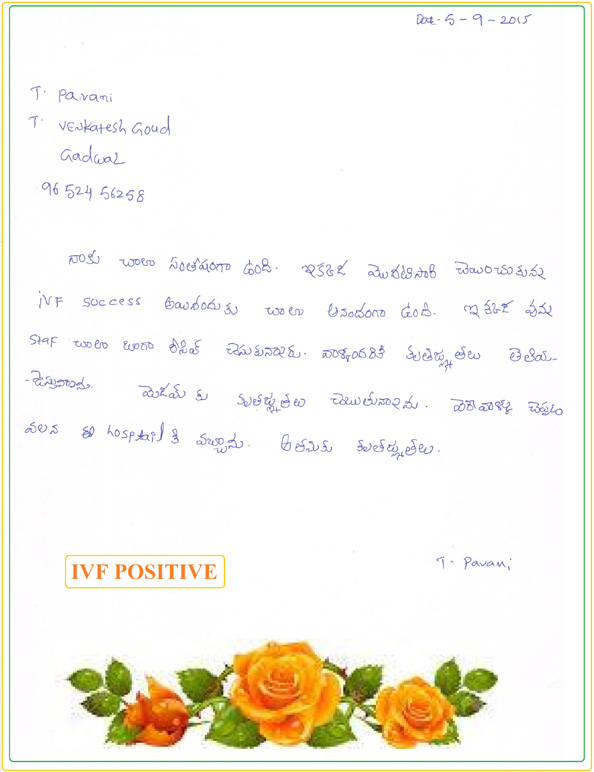 Date - 5 - 9 - 2015
T. Pavani
T. Venkatesh Goud
Gadwal
96 524 56258
నాకు చాలా సంతోషంగా ఉంది. ఇక్కడ మొదటిసారి చేయించుకున్న
iVF success అయినందుకు చాలా ఆనందంగా ఉంది. ఇక్కడ వున్న
staf చాలా బాగా రిసీవ్ చేసుకున్నారు. వాళ్ళందరికి కృతజ్ఞతలు తెలియ-
-చేస్తున్నాను. మెడమ్ కు కృతజ్ఞతలు చెబుతున్నాను. చెప్పటం
వలన ఈ hospital కి వచ్చాను. కృతజ్ఞతలు.
T. Pavani
IVF POSITIVE